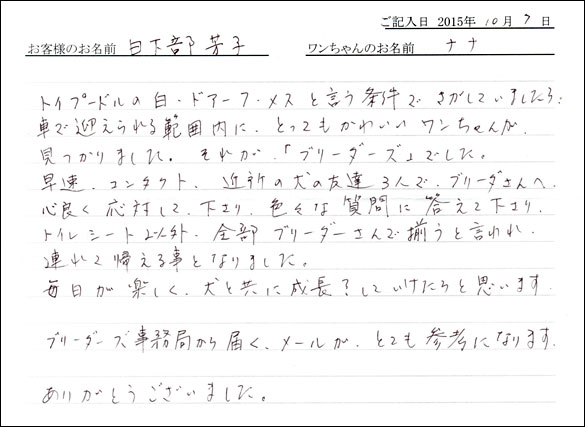 ご記入日 2015年 10 月 7 日
お客様のお名前 日下部 芳子 ワンちゃんのお名前 ナナ
トイプードルの白・ドアーフ・メスと言う条件でさがしていましたら、
車で迎えられる範囲内に、とってもかわいいワンちゃんが、
見つかりました。それが、「ブリーダーズ」でした。
早速、コンタクト、近所の犬の友達3人で、ブリーダさんへ、
心良く応対して、下さり、色々な質問に答えて下さり、
トイレシート以外、全部ブリーダーさんで揃うと言われ、
連れて帰える事となりました。
毎日が楽しく、犬と共に成長?していけたらと思います。
ブリーダーズ事務局から届く、メールが、とても参考になります。
ありがとうございました。